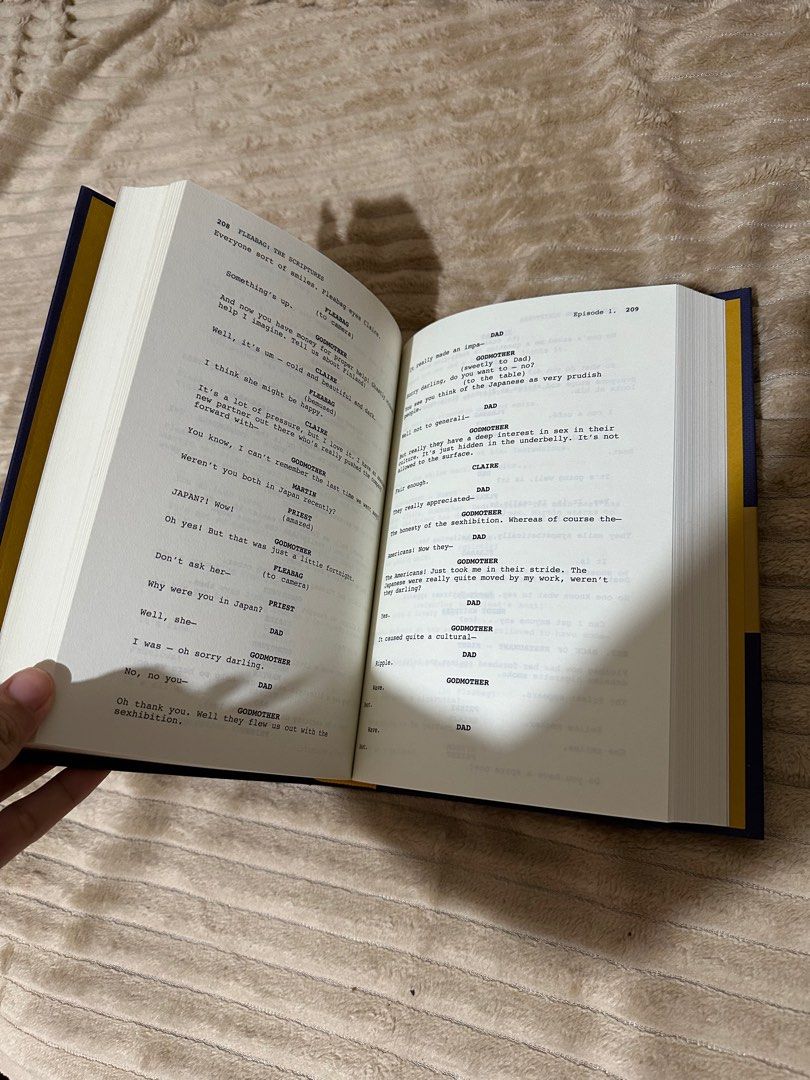 208 FLEABAG: THE SCRIPTURES
Everyone sort of smiles. Fleabag eyes Claire.
FLEABAG
(to camera)
Something's up.
GODMOTHER
And now you have money for proper help!
help I imagine. Tell us about Finland!
CLAIRE
Well, it's um — cold and beautiful and dark.
FLEABAG
(bemused)
I think she might be happy.
CLAIRE
It's a lot of pressure, but I love it, I have an
new partner out there who's really pushed the company
forward with—
GODMOTHER
You know, I can't remember the last time we went away.
MARTIN
Weren't you both in Japan recently?
PRIEST
(amazed)
JAPAN?! Wow!
GODMOTHER
Oh yes! But that was just a little fortnight.
FLEABAG
(to camera)
Don't ask her—
PRIEST
Why were you in Japan?
DAD
Well, she—
GODMOTHER
I was — oh sorry darling.
DAD
No, no you—
GODMOTHER
Oh thank you. Well they flew us out with the
sexhibition.
Episode 1. 209
DAD
It really made an impa—
GODMOTHER
(sweetly to Dad)
Sorry darling, do you want to — no?
(to the table)
You see you think of the Japanese as very prudish
people.
DAD
Well not to generali—
GODMOTHER
But really they have a deep interest in sex in their
culture. It's just hidden in the underbelly. It's not
allowed to the surface.
CLAIRE
Fair enough.
DAD
They really appreciated—
GODMOTHER
The honesty of the sexhibition. Whereas of course the—
DAD
Americans! Now they—
GODMOTHER
The Americans! Just took me in their stride. The
Japanese were really quite moved by my work, weren't
they darling?
DAD
Yes—
GODMOTHER
It caused quite a cultural—
DAD
Ripple.
GODMOTHER
Wave.
DAD
Wave.